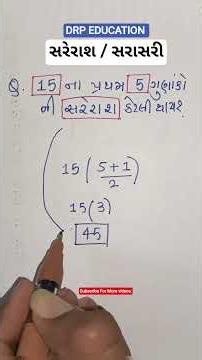 DRP EDUCATION
સરેરાશ / સરાસરી
Q. 15 ના પ્રથમ 5 ગુણાંકો
ની સરેરાશ કેટલી થાય?
15 ( 5+1 / 2 )
15(3)
45
Subscribe For More videos